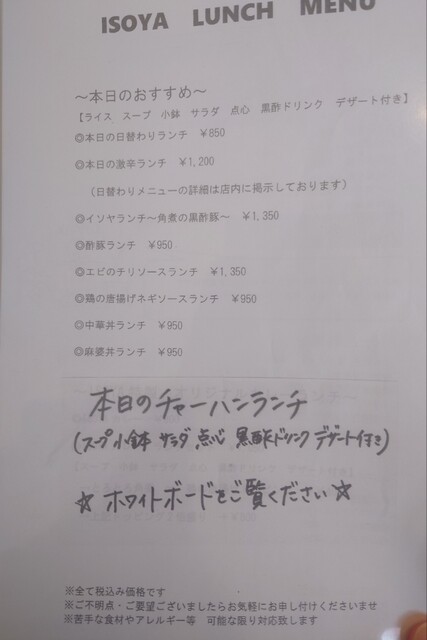 ISOYA LUNCH MENU
～本日のおすすめ～
【ライス スープ 小鉢 サラダ 点心 黒酢ドリンク デザート付き】
◎本日の日替わりランチ ￥850
◎本日の激辛ランチ ￥1,200
（日替わりメニューの詳細は店内に掲示しております）
◎イソヤランチ～角煮の黒酢豚～ ￥1,350
◎酢豚ランチ ￥950
◎エビのチリソースランチ ￥1,350
◎鶏の唐揚げネギソースランチ ￥950
◎中華丼ランチ ￥950
◎麻婆丼ランチ ￥950
本日のチャーハンランチ
(スープ 小鉢 サラダ 点心 黒酢ドリンク デザート付き)
☆ ホワイトボードをご覧ください☆
※全て税込み価格です
※ご不明点・ご要望ございましたらお気軽にお申し付けくださいませ
※苦手な食材やアレルギー等 可能な限り対応致します